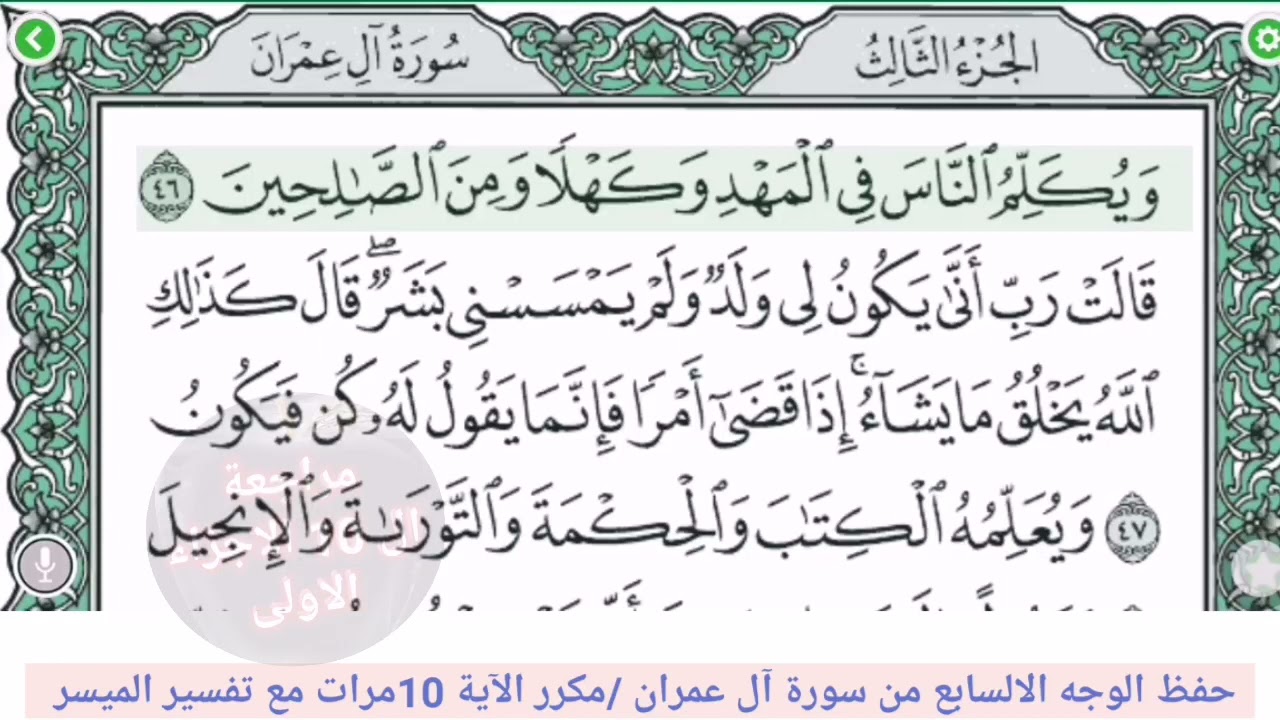 الجُزْءُ الثَّالِثُ
سُورَةُ آلِ عِمْرَانَ
وَيُكَلِّمُ ٱلنَّاسَ فِي ٱلْمَهْدِ وَكَهْلًا وَمِنَ ٱلصَّٰلِحِينَ ٤٦
قَالَتْ رَبِّ أَنَّىٰ يَكُونُ لِي وَلَدٌ وَلَمْ يَمْسَسْنِي بَشَرٌۖ قَالَ كَذَٰلِكِ
ٱللَّهُ يَخْلُقُ مَا يَشَآءُۚ إِذَا قَضَىٰٓ أَمْرًا فَإِنَّمَا يَقُولُ لَهُۥ كُن فَيَكُونُ
٤٧ وَيُعَلِّمُهُ ٱلْكِتَٰبَ وَٱلْحِكْمَةَ وَٱلتَّوْرَىٰةَ وَٱلْإِنجِيلَ
مراجعة
ال 10 الاجزاء
الاولى
حفظ الوجه الالسابع من سورة آل عمران /مكرر الآية 10مرات مع تفسير الميسر